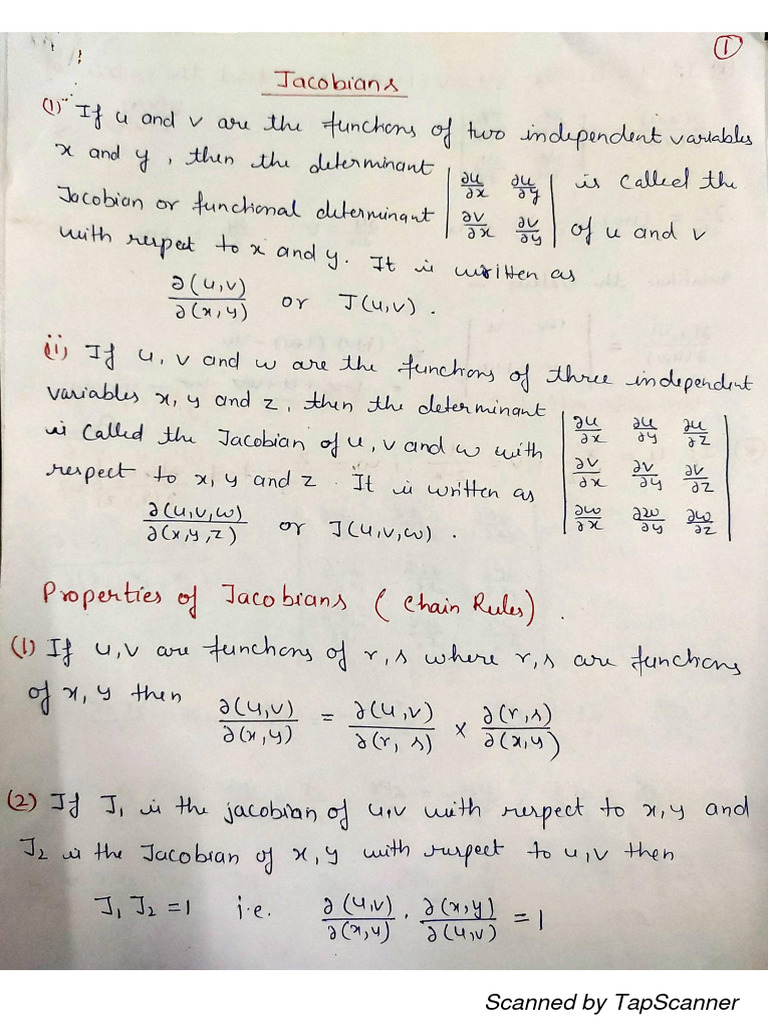 ①
Jacobians
(i) If u and v are the functions of two independent variables
x and y, then the determinant | ∂u/∂x ∂u/∂y | is called the
Jacobian or functional determinant | ∂v/∂x ∂v/∂y | of u and v
with respect to x and y. It is written as
∂(u,v)/∂(x,y) or J(u,v).
(ii) If u, v and w are the functions of three independent
variables x, y and z, then the determinant | ∂u/∂x ∂u/∂y ∂u/∂z |
is called the Jacobian of u, v and w with | ∂v/∂x ∂v/∂y ∂v/∂z |
respect to x, y and z. It is written as | ∂w/∂x ∂w/∂y ∂w/∂z |
∂(u,v,w)/∂(x,y,z) or J(u,v,w).
Properties of Jacobians (Chain Rules).
(1) If u,v are functions of r,s where r,s are functions
of x, y then ∂(u,v)/∂(x,y) = ∂(u,v)/∂(r,s) × ∂(r,s)/∂(x,y)
(2) If J₁ is the jacobian of u,v with respect to x,y and
J₂ is the Jacobian of x,y with respect to u,v then
J₁ J₂ = 1 i.e. ∂(u,v)/∂(x,y) · ∂(x,y)/∂(u,v) = 1
Scanned by TapScanner